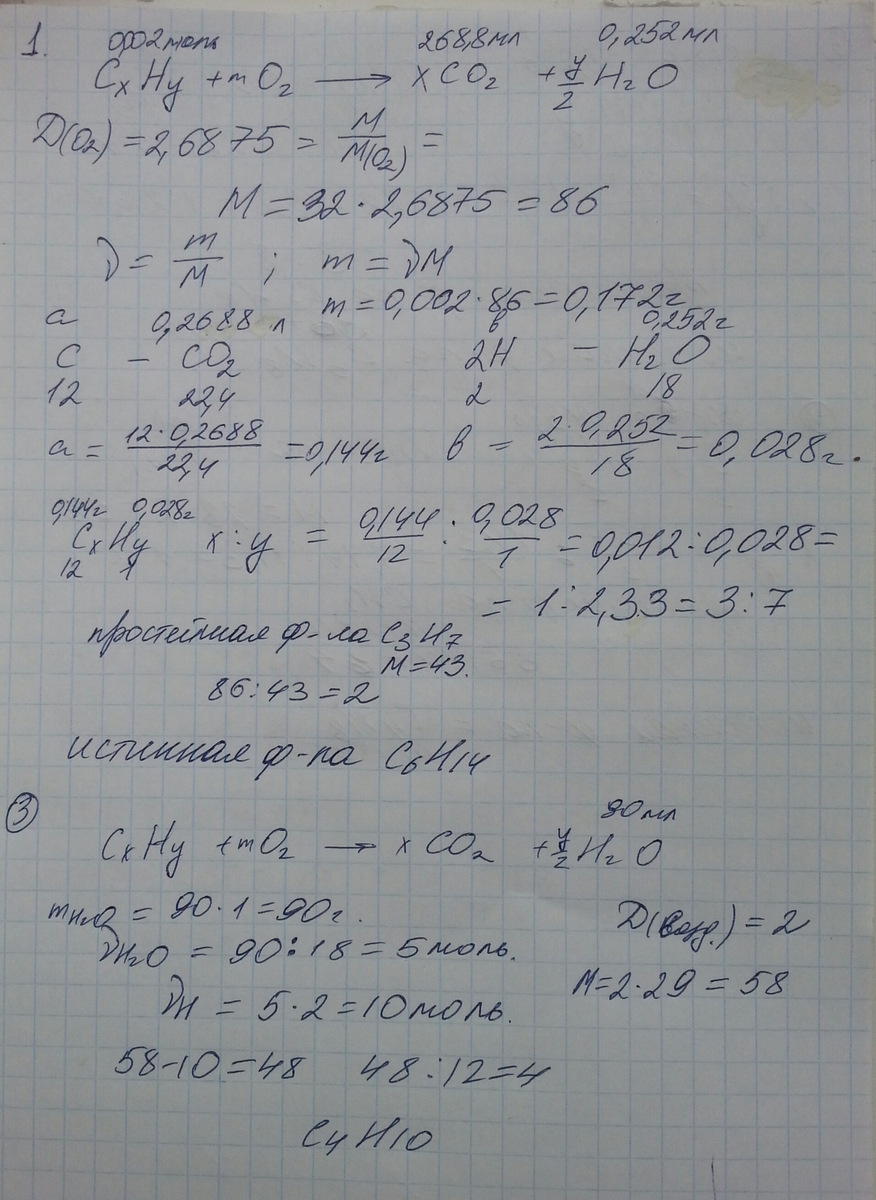 1. 0,002 моль 268,8 мл 0,252 мл
CxHy + mO2 → xCO2 + y/2 H2O
D(O2) = 2,6875 = M/M(O2) =
M = 32 · 2,6875 = 86
ν = m/M ; m = νM
m = 0,002 · 86 = 0,172г
a 0,2688 л в 0,252г
C – CO2 2H – H2O
12 22,4 2 18
a = 12·0,2688/22,4 = 0,144г в = 2·0,252/18 = 0,028г.
0,144г 0,028г
CxHy x:y = 0,144/12 : 0,028/1 = 0,012:0,028 =
12 1
= 1:2,33 = 3:7
простейшая ф-ла C3H7
M = 43.
86:43 = 2
истинная ф-ла C6H14
3 90 мл
CxHy + mO2 → xCO2 + y/2 H2O
mH2O = 90·1 = 90г. D(возд.) = 2
νH2O = 90:18 = 5 моль.
M = 2·29 = 58
νH = 5·2 = 10 моль.
58-10 = 48 48:12 = 4
C4H10